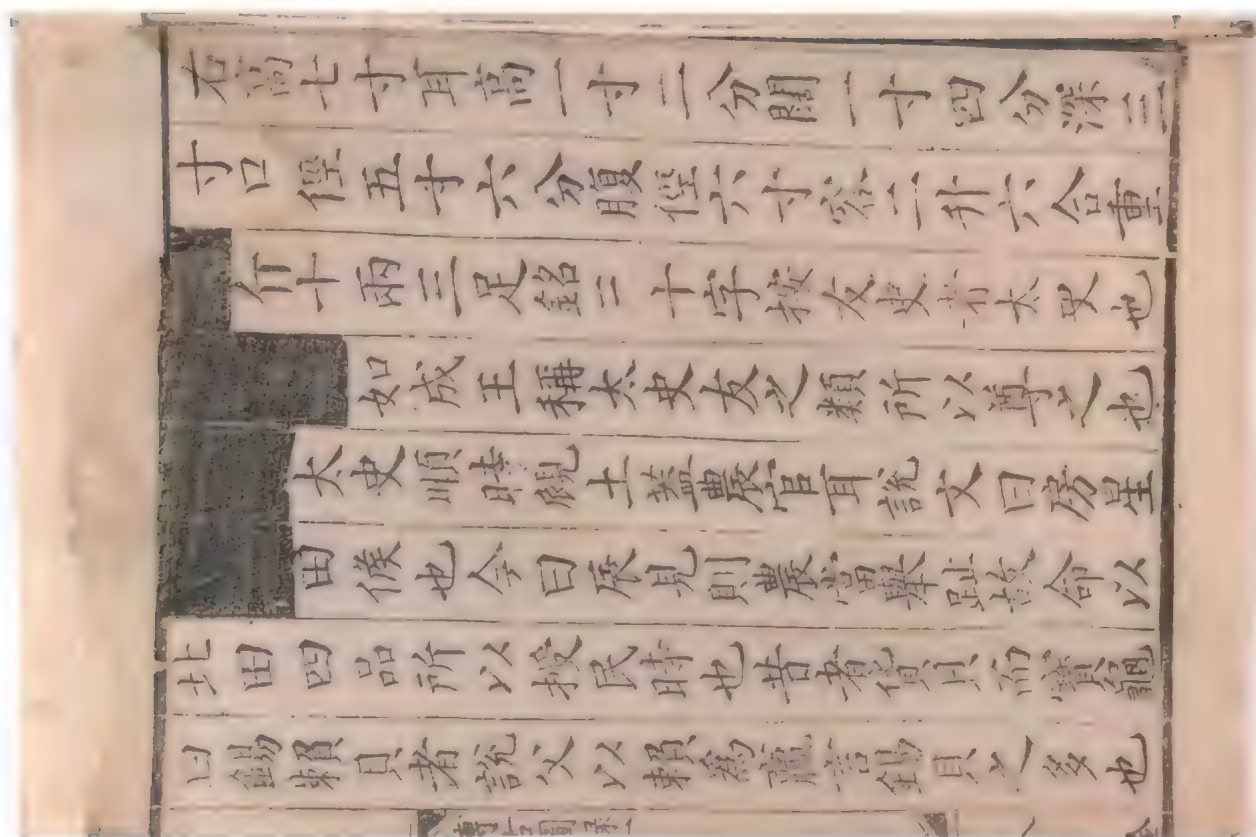 右高七寸耳高一寸二分闊一寸四分深三
寸口徑五寸六分腹徑六寸容二升六合重
斤十兩三足銘二十字按友史者太史也
如成王稱太史友之類所以尊之也
太史順時覛土蓋農官耳說文曰房星
田候也今曰辰見則農當舉趾故命以
北田四品所以授民時也昔者貨貝而寶龜
曰錫賴貝者說文以賴為贏言錫貝之多也